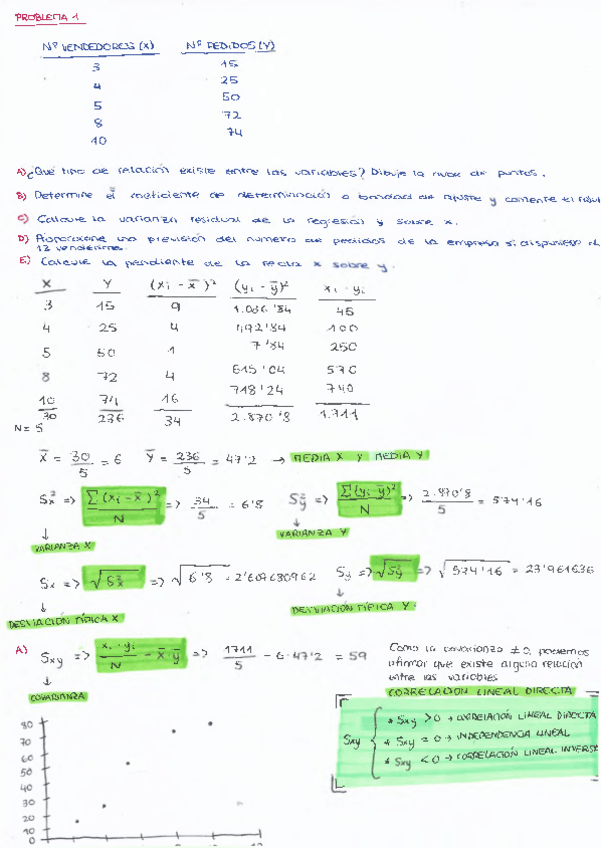 PROBLEMA 1
Nº VENDEDORES (X) Nº PEDIDOS (Y)
3 15
4 25
5 50
8 72
10 74
A) ¿Qué tipo de relación existe entre las variables? Dibuje la nube de puntos.
B) Determine el coeficiente de determinación o bondad de ajuste y comente el
C) Calcule la varianza residual de la regresión y sobre x.
D) Proporcione una previsión del numero de pedidos de la empresa si dispusiese
12 vendedores.
E) Calcule la pendiente de la recta x sobre y.
X Y (xi - x̄)² (yi - ȳ)² xi · yi
3 15 9 1.036'84 45
4 25 4 492'84 100
5 50 1 7'84 250
8 72 4 615'04 576
10 74 16 718'24 740
30 236 34 2.870'8 1.711
N= 5
x̄ = 30/5 = 6 ȳ = 236/5 = 47'2 → MEDIA X Y MEDIA Y
Sx² => Σ(xi - x̄)²/N => 34/5 = 6'8 Sy² => Σ(yi - ȳ)²/N => 2.870'8/5 = 574'16
↓ ↓
VARIANZA X VARIANZA Y
Sx => √Sx² => √6'8 = 2'607680962 Sy => √Sy² => √574'16 = 23'961636
↓ ↓
DESVIACIÓN TÍPICA X DESVIACIÓN TÍPICA Y
A) Sxy => xi · yi/N - x̄ · ȳ => 1711/5 - 6·47'2 = 59
↓
COVARIANZA
Como la covarianza ≠ 0, podemos
afirmar que existe alguna relación
entre las variables
CORRELACION LINEAL DIRECTA
Sxy
* Sxy > 0 → CORRELACIÓN LINEAL DIRECTA
* Sxy = 0 → INDEPENDENCIA LINEAL
* Sxy < 0 → CORRELACIÓN LINEAL INVERSA
80
70
60
50
40
30
20
10
0